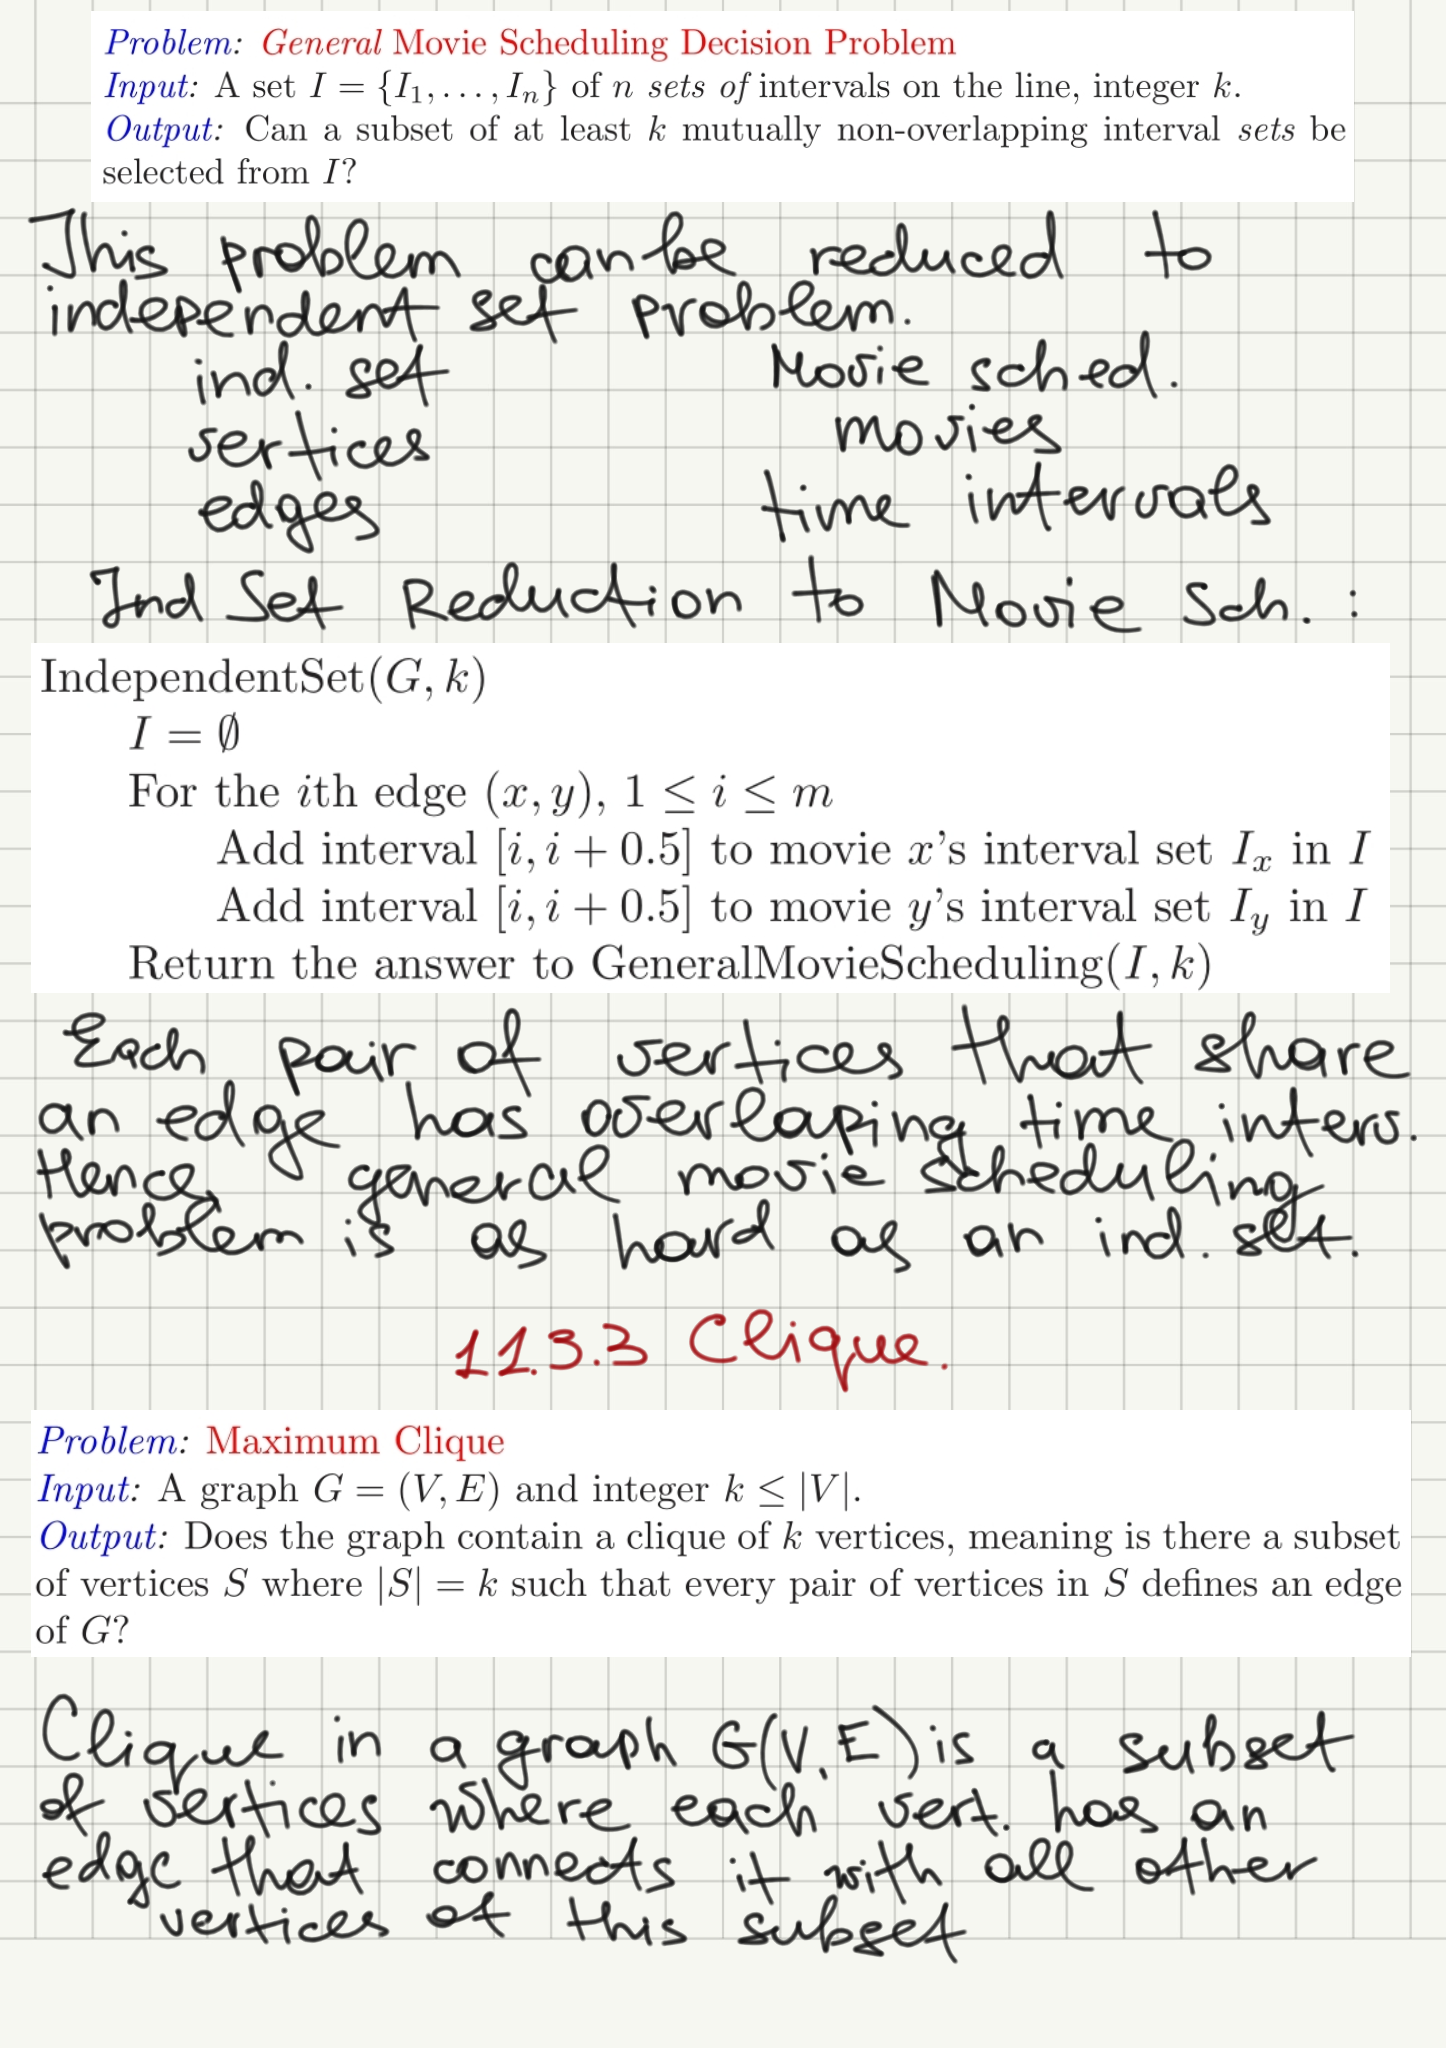 Problem: General Movie Scheduling Decision Problem
Input: A set I = {I₁, . . . , Iₙ} of n sets of intervals on the line, integer k.
Output: Can a subset of at least k mutually non-overlapping interval sets be
selected from I?
This problem can be reduced to
independent set problem.
ind. set Movie sched.
vertices movies
edges time intervals
Ind Set Reduction to Movie Sch. :
IndependentSet(G, k)
I = ∅
For the ith edge (x, y), 1 ≤ i ≤ m
Add interval [i, i + 0.5] to movie x's interval set Iₓ in I
Add interval [i, i + 0.5] to movie y's interval set I_y in I
Return the answer to GeneralMovieScheduling(I, k)
Each pair of vertices that share
an edge has overlaping time interv.
Hence, general movie scheduling
problem is as hard as an ind. set.
11.3.3 Clique.
Problem: Maximum Clique
Input: A graph G = (V, E) and integer k ≤ |V|.
Output: Does the graph contain a clique of k vertices, meaning is there a subset
of vertices S where |S| = k such that every pair of vertices in S defines an edge
of G?
Clique in a graph G(V, E) is a subset
of vertices where each vert. has an
edge that connects it with all other
vertices of this subset